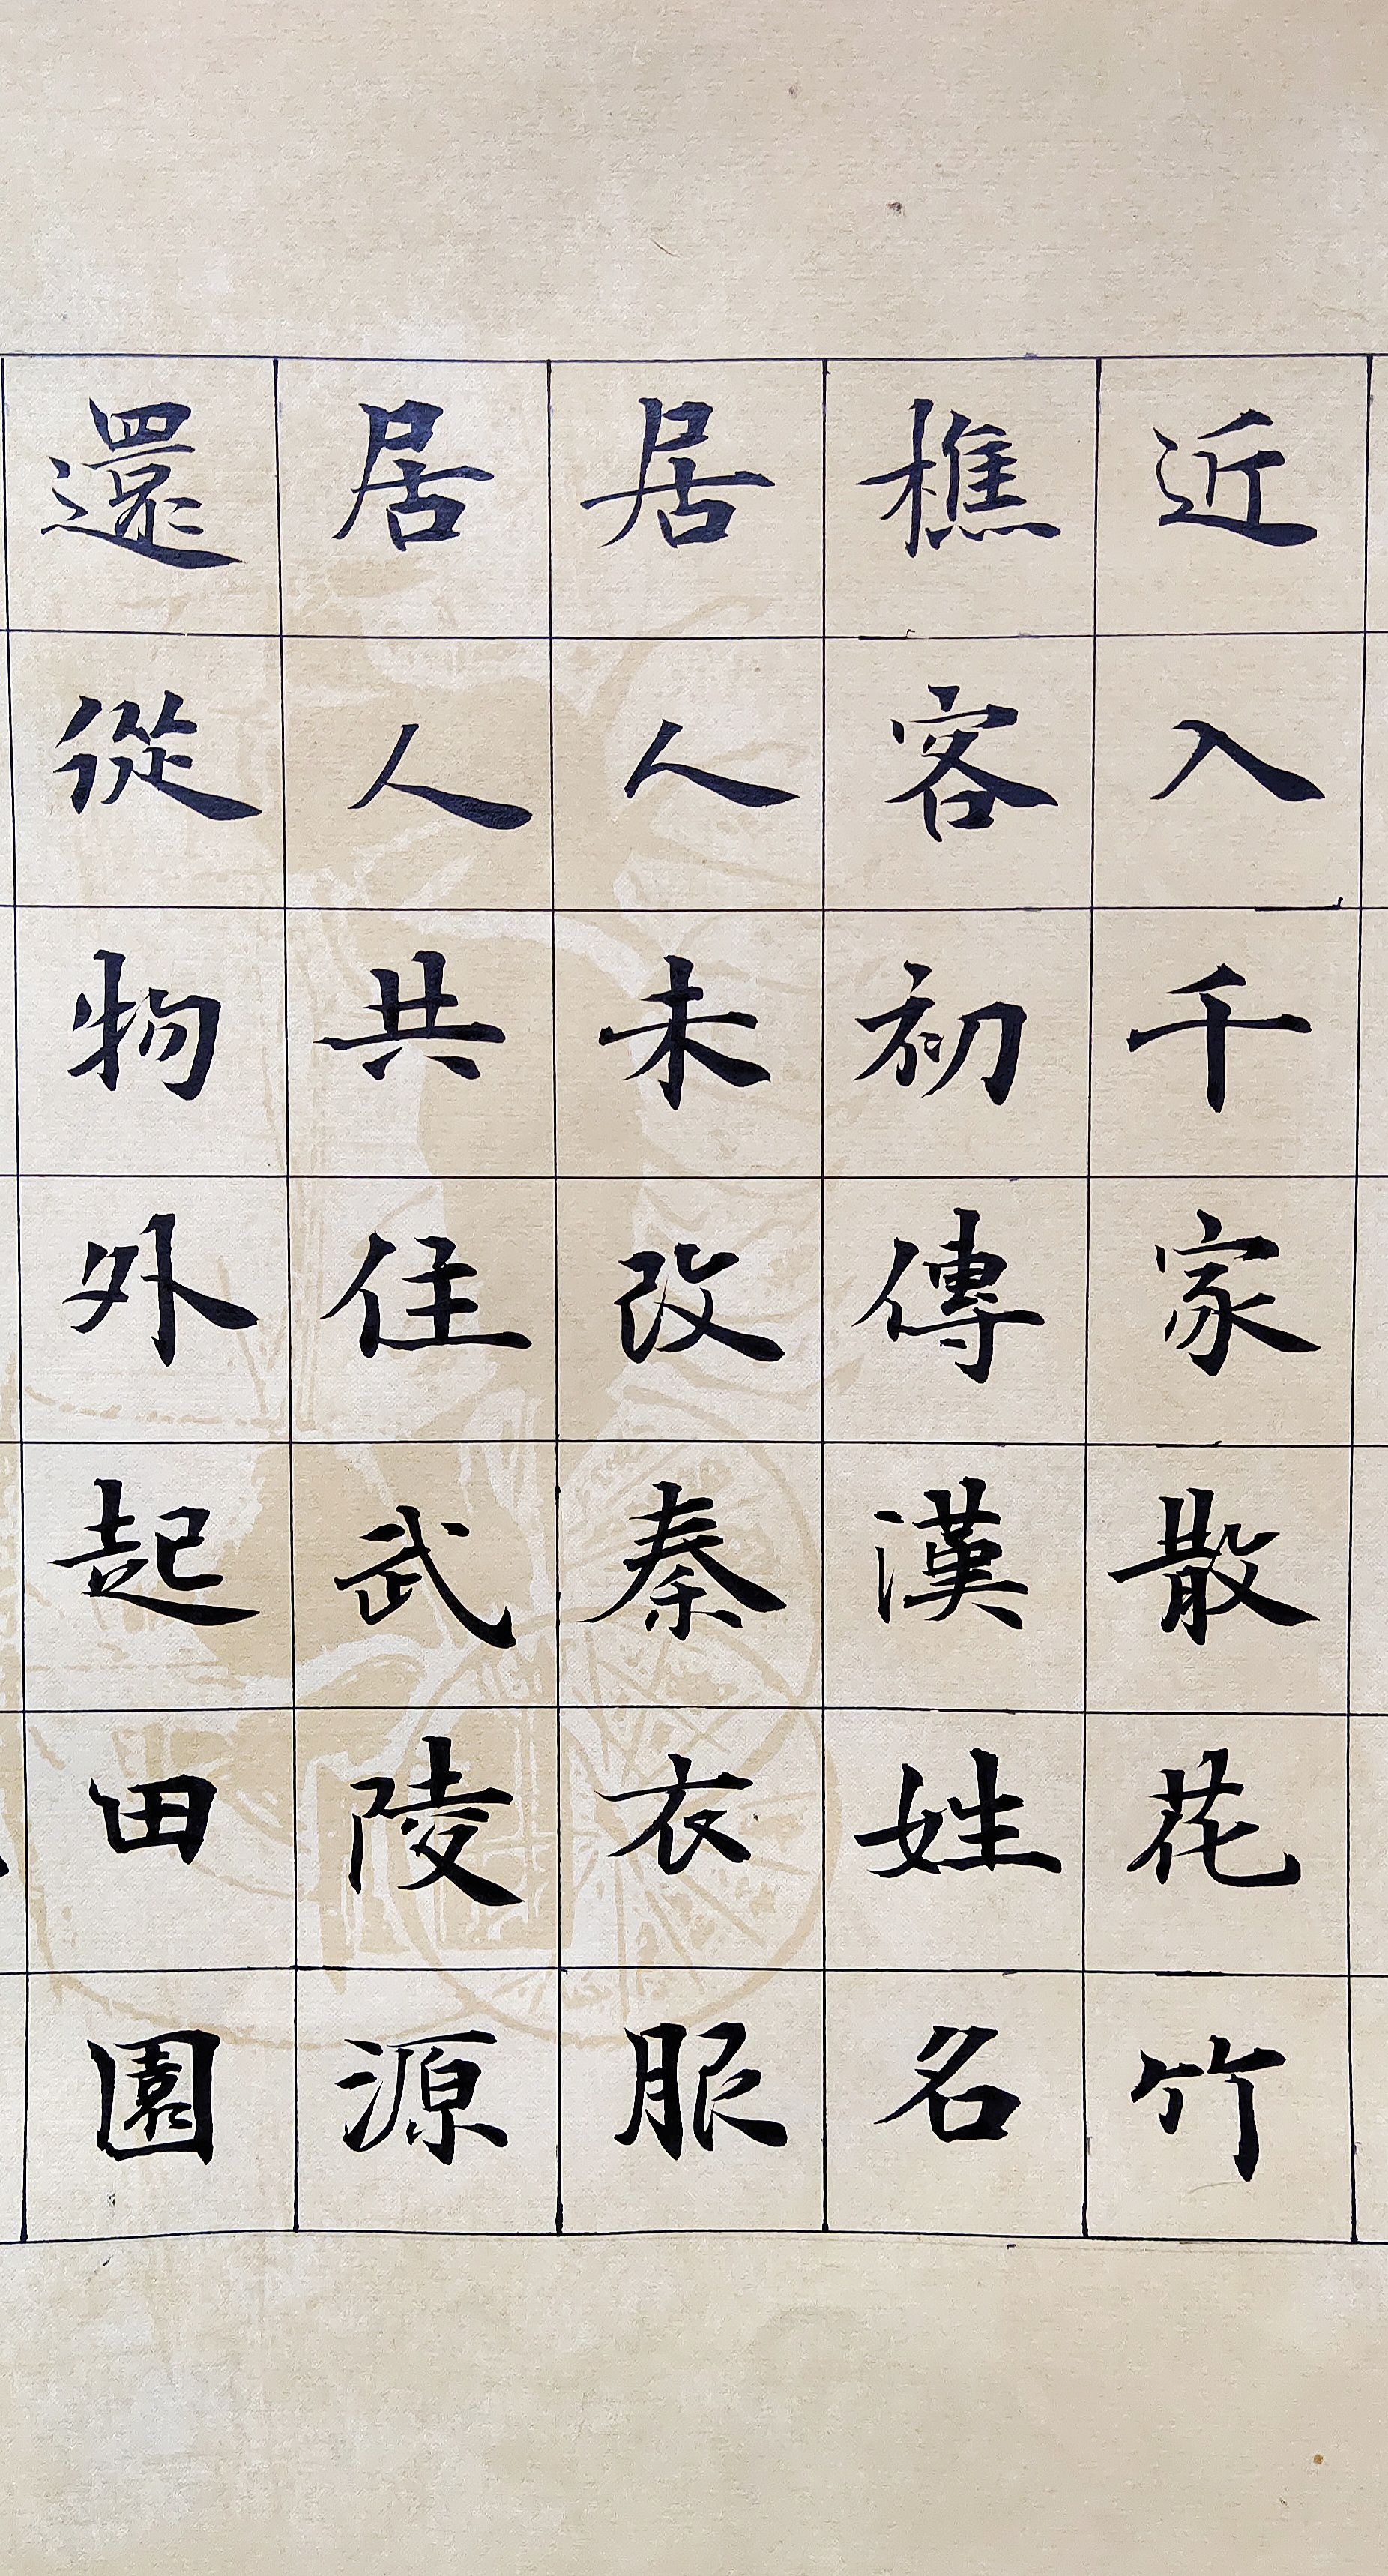 近入千家散花竹
樵客初傳漢姓名
居人未改秦衣服
居人共住武陵源
還從物外起田園